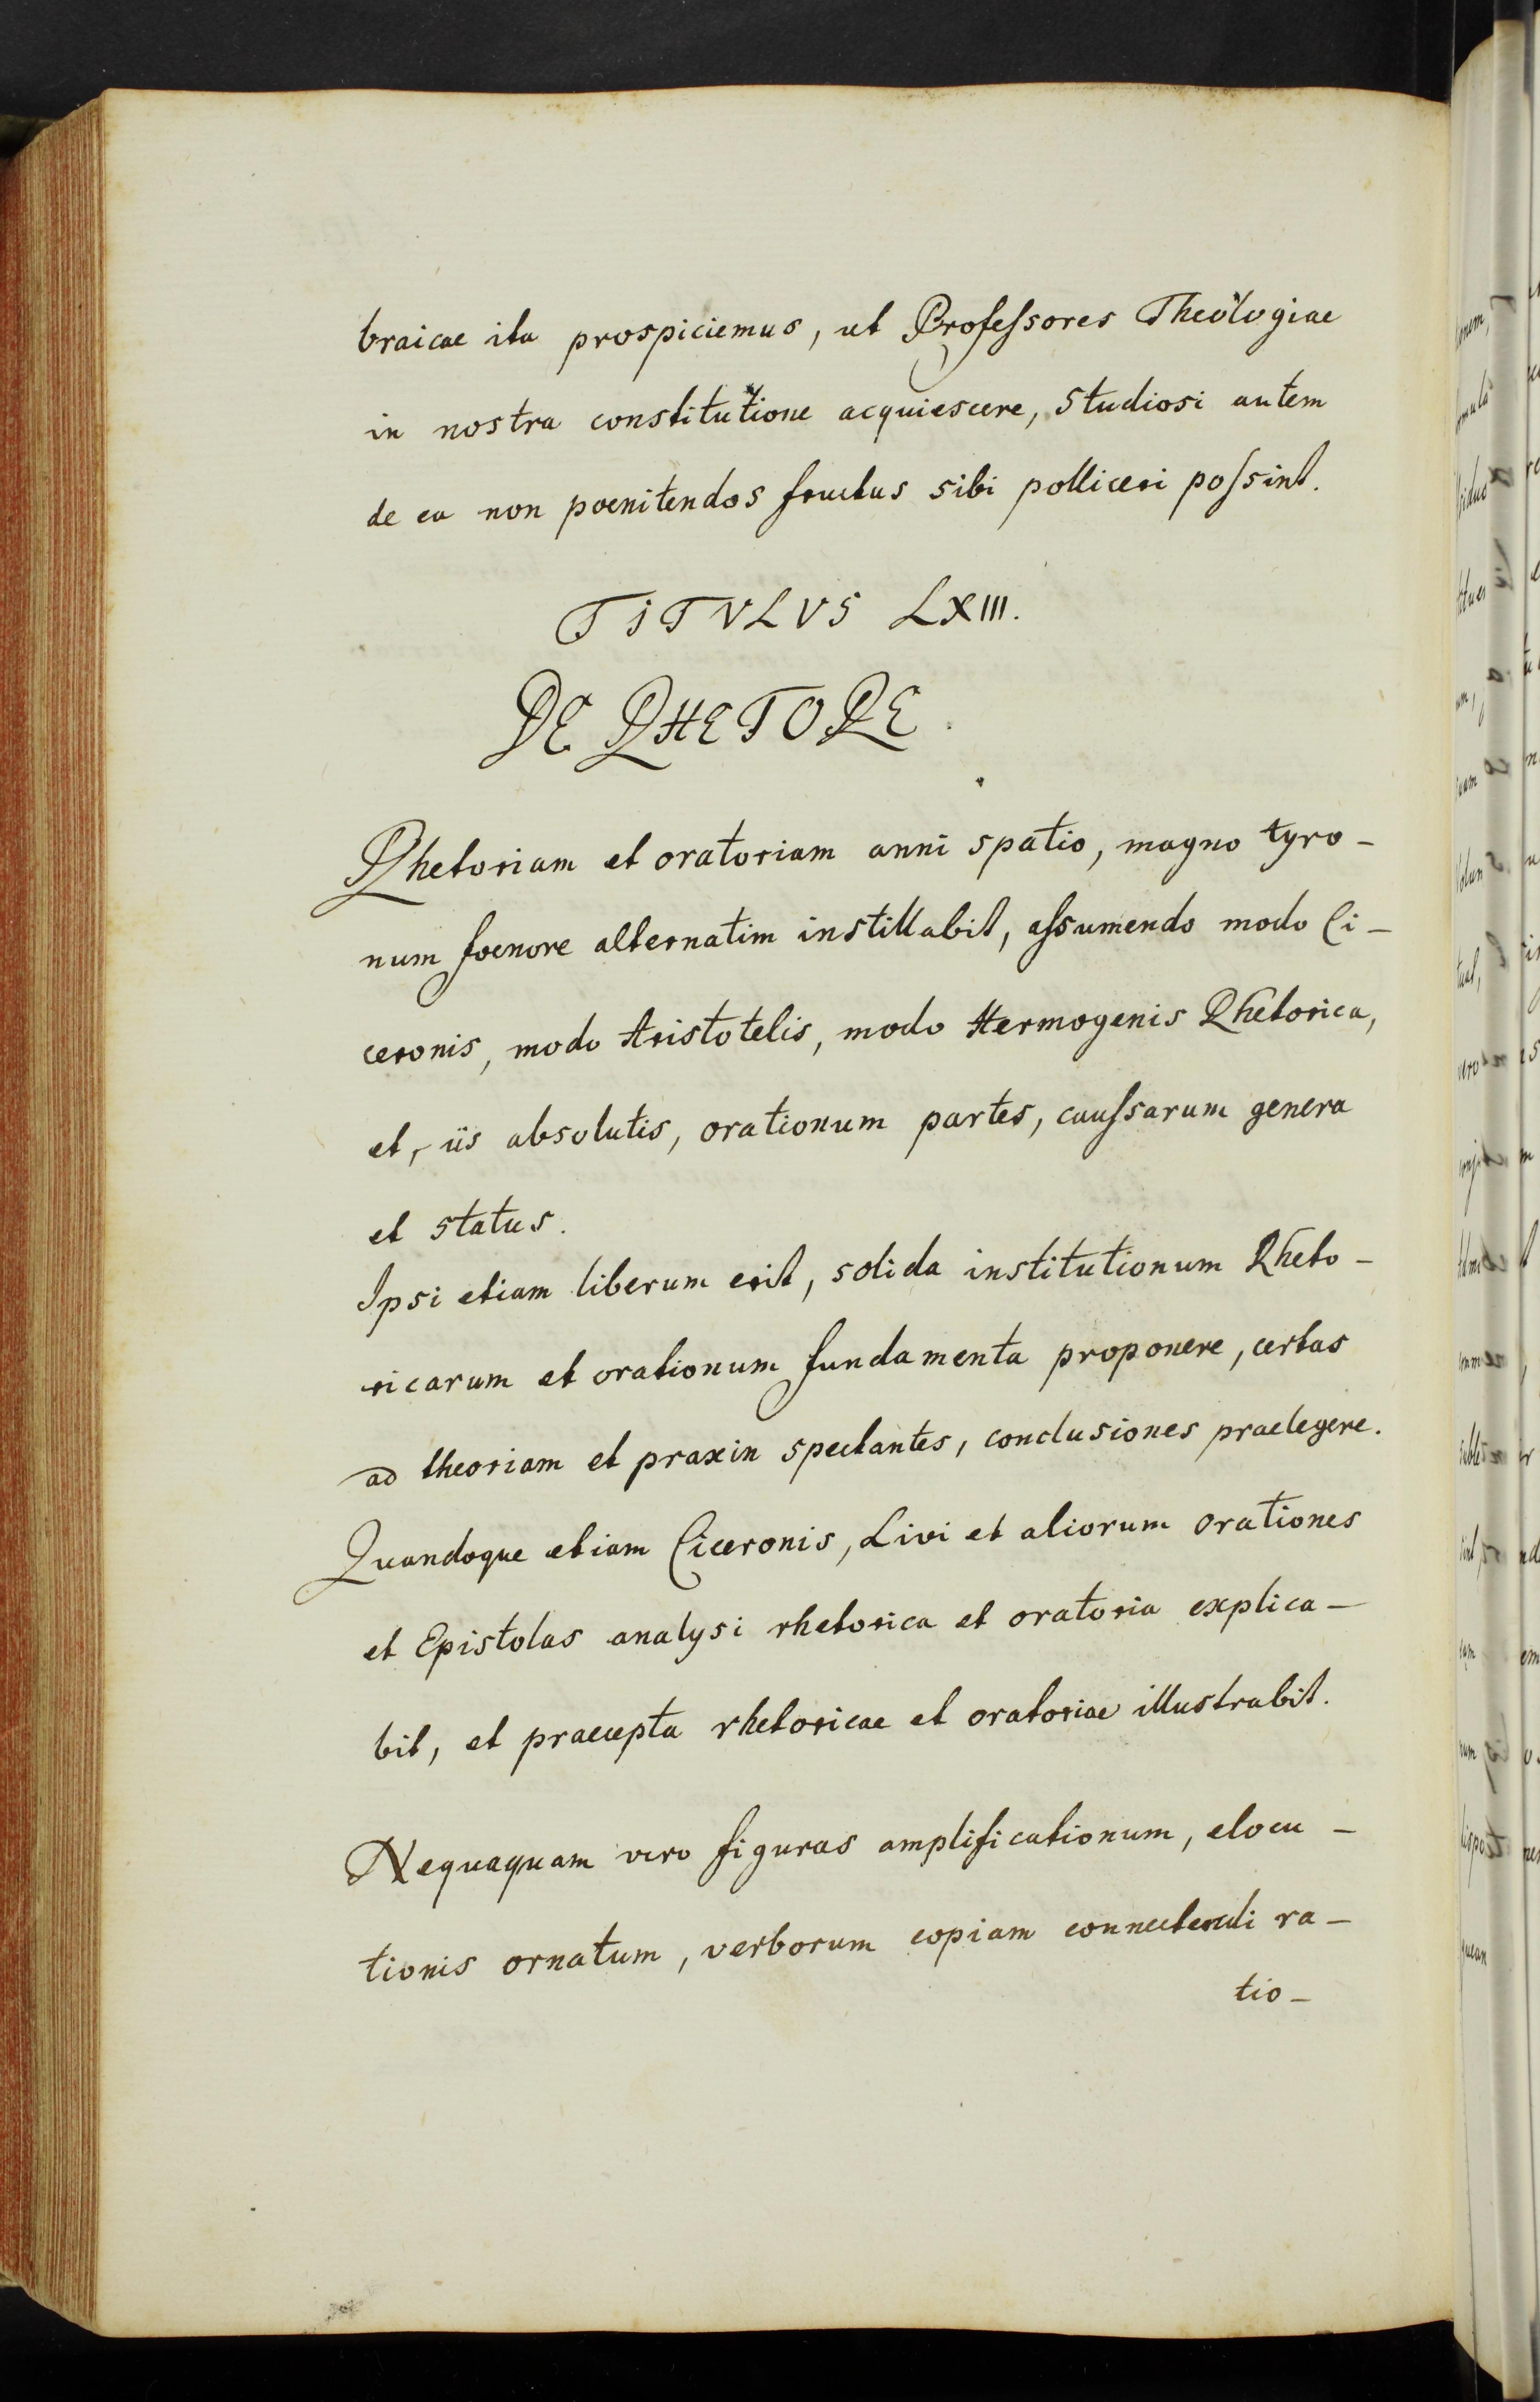 braicae ita prospiciemus, ut Profeſsores Theologiae
in nostra constitutione acquiescere, studiosi autem
de ea non poenitendos fructus sibi polliceri poſsint.
TITVLVS LXIII.
DE RHETORE.
Rhetoriam et oratoriam anni spatio, magno tyro-
num foenore alternatim instillabit, aſsumendo modo Ci-
ceronis, modo Aristotelis, modo Hermogenis Rhetorica,
et, iis absolutis, orationum partes, cauſsarum genera
et status.
Ipsi etiam liberum erit, solida institutionum Rheto-
ricarum et orationum fundamenta proponere, certas
ad theoriam et praxin spectantes, conclusiones praelegere.
Quandoque etiam Ciceronis, Livi et aliorum orationes
et Epistolas analysi rhetorica et oratoria explica-
bit, et praecepta rhetoricae et oratoriae illustrabit.
Nequaquam vero figuras amplificationum, elocu-
tionis ornatum, verborum copiam connectendi ra-
tio-